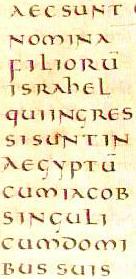 AECSUNT
NOMINA
FILIORŪ
ISRAHEL
QUIINGRES
SISUNTIN
AEGYPTŪ
CUMIACOB
SINGULI
CUMDOMI
BUS SUIS